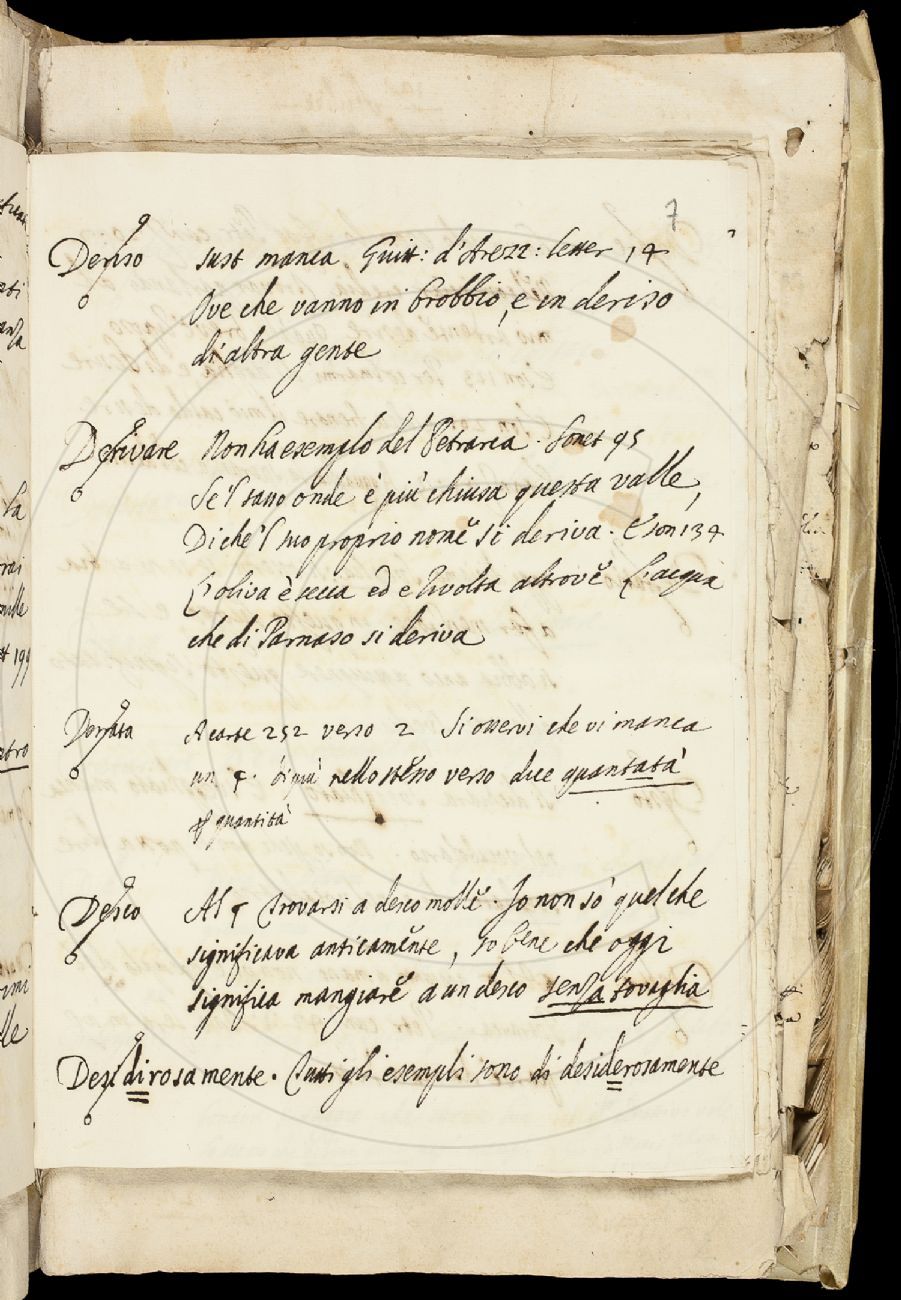 7
Deriso sust manca Guitt: d'Arezz: letter 14
Ove che vanno in brobbio, e in deriso
di altra gente
Derivare Non ha esemplo del Petrarca. Sonet 95
Se'l sasso onde è più chiusa questa valle,
Di che'l suo proprio nome si deriva. E son 134
L'oliva è secca ed è rivolta altrove L'acqua
che di Parnaso si deriva
Derrata A carte 252 verso 2 Si osservi che vi manca
un §. di più nello stesso verso dice quantatà
quantità
Desco Al § trovarsi a desco molle. Io non sò quel che
significava anticamente, so bene che oggi
significa mangiare a un desco senza tovaglia
Desidirosamente. Tutti gli esempli sono di desiderosamente